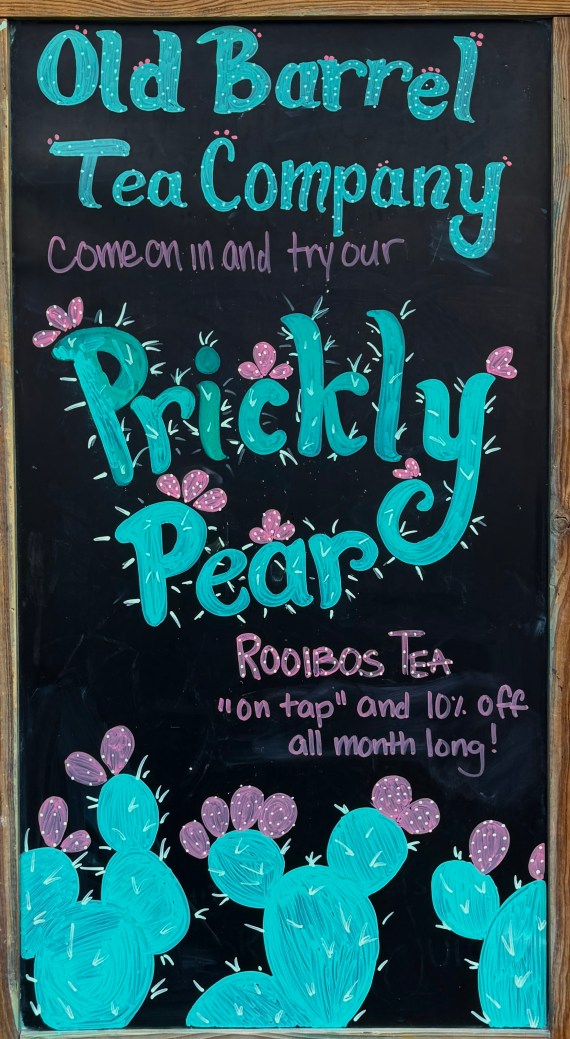 Old Barrel
Tea Company
Come on in and try our
Prickly
Pear
Rooibos Tea
"on tap" and 10% off
all month long!